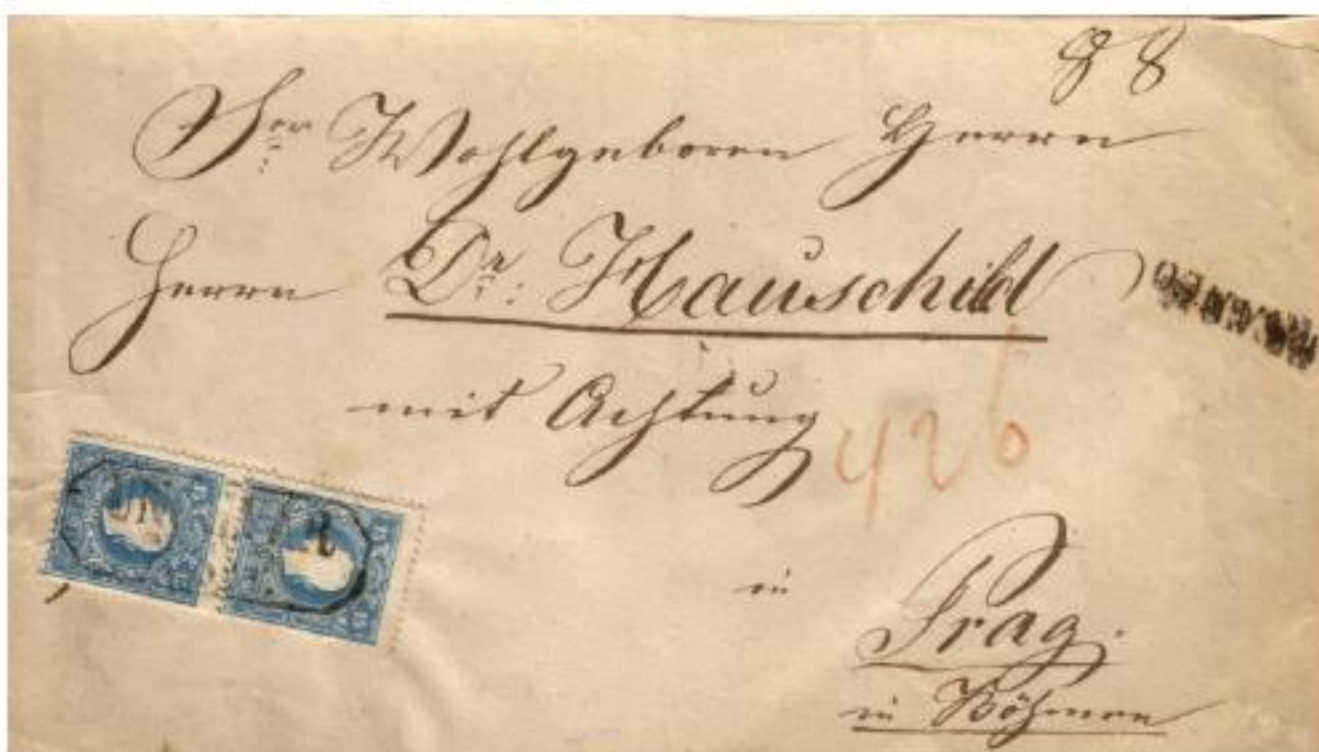 88
Sr: Wohlgeboren Herrn
Herrn Dr: Hauschild
mit Achtung
426
in
Prag.
in Böhmen